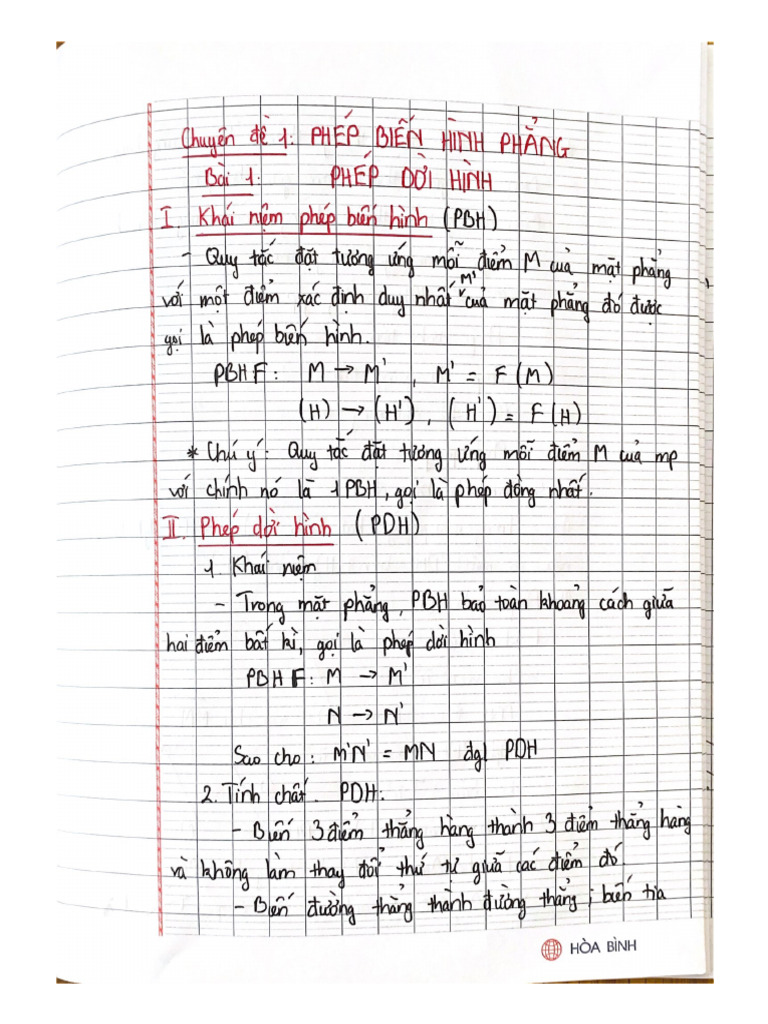 Chuyên đề 1: PHÉP BIẾN HÌNH PHẲNG
Bài 1: PHÉP DỜI HÌNH
I. Khái niệm phép biến hình (PBH)
- Quy tắc đặt tương ứng mỗi điểm M của mặt phẳng
với một điểm xác định duy nhất M' của mặt phẳng đó được
gọi là phép biến hình.
PBH F: M → M', M' = F(M)
(H) → (H'), (H') = F(H)
* Chú ý: Quy tắc đặt tương ứng mỗi điểm M của mp
với chính nó là 1 PBH, gọi là phép đồng nhất.
II. Phép dời hình (PDH)
1. Khái niệm
- Trong mặt phẳng, PBH bảo toàn khoảng cách giữa
hai điểm bất kì, gọi là phép dời hình
PBH F: M → M'
N → N'
Sao cho: M'N' = MN đgl PDH
2. Tính chất. PDH:
- Biến 3 điểm thẳng hàng thành 3 điểm thẳng hàng
và không làm thay đổi thứ tự giữa các điểm đó
- Biến đường thẳng thành đường thẳng; biến tia
HÒA BÌNH